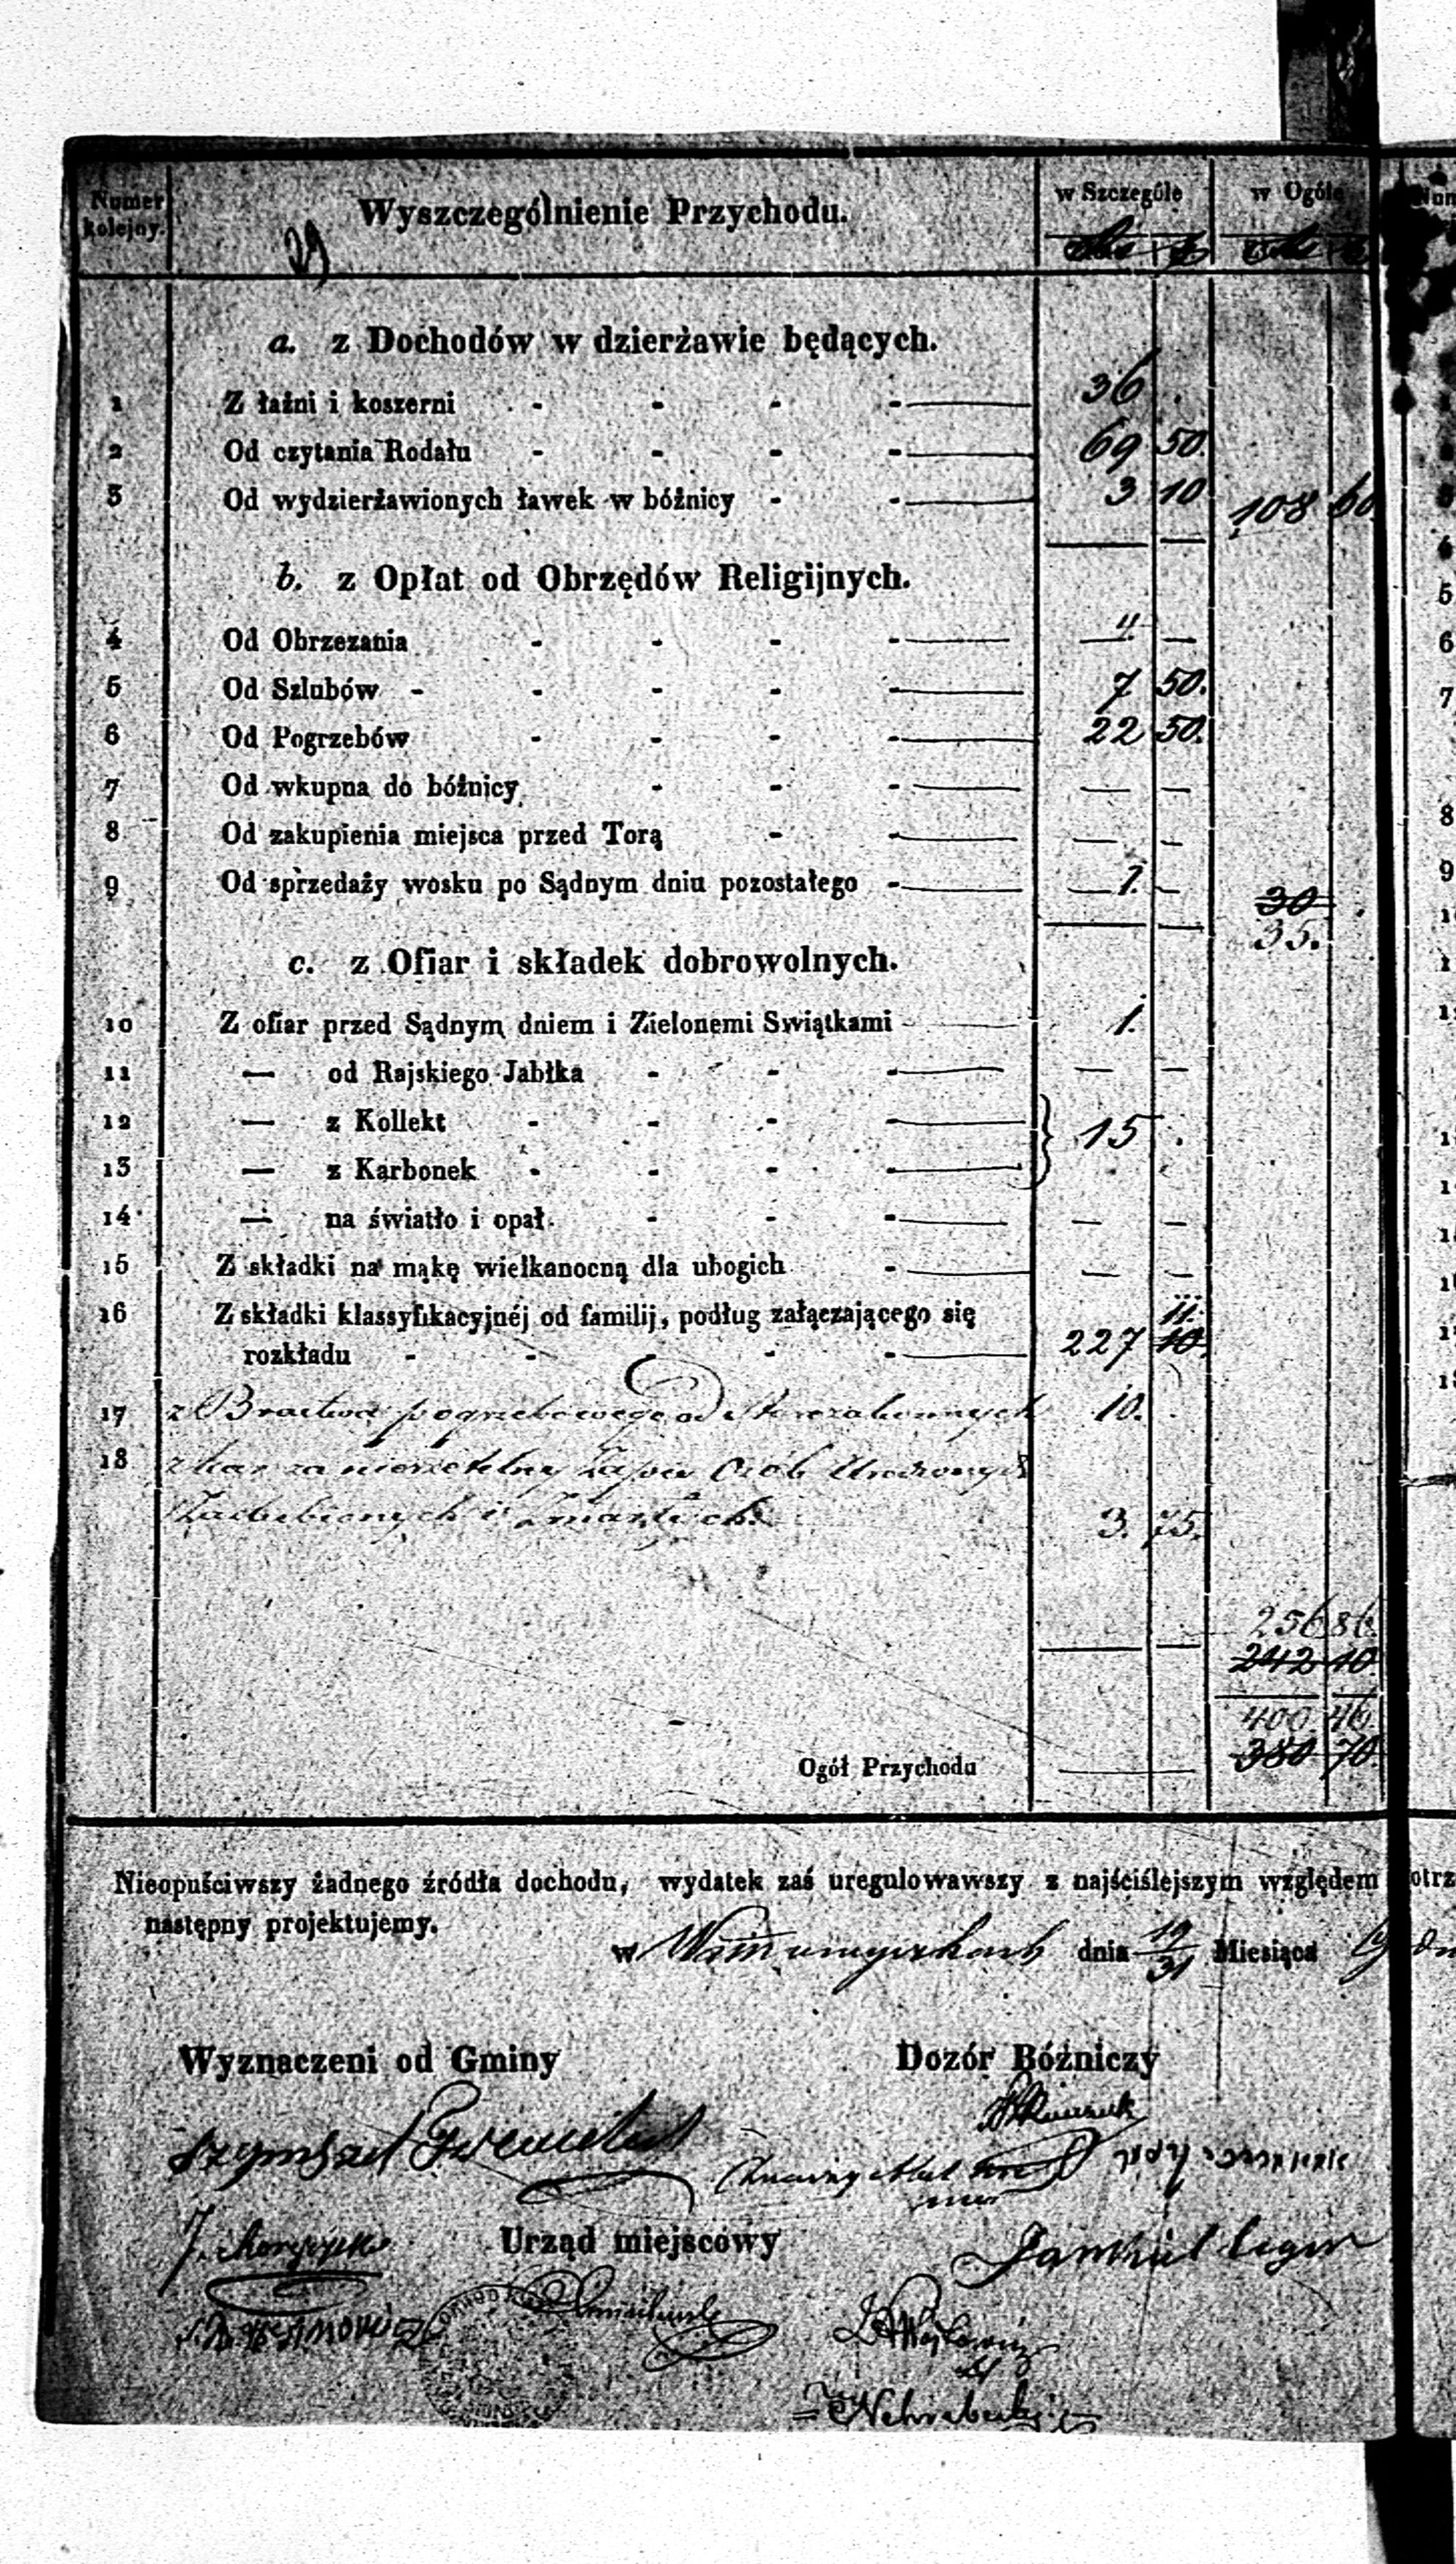 Numer kolejny.
Wyszczególnienie Przychodu.
w Szczególe
w Ogóle
29
a. z Dochodów w dzierżawie będących.
1 Z łaźni i koszerni - - - - 36 .
2 Od czytania Rodału - - - - 69 50.
3 Od wydzierżawionych ławek w bóżnicy - - 3 10 108 60.
b. z Opłat od Obrzędów Religijnych.
4 Od Obrzezania - - - - 4. —
5 Od Szlubów - - - - - 7 50.
6 Od Pogrzebów - - - - 22 50.
7 Od wkupna do bóżnicy - - - — —
8 Od zakupienia miejsca przed Torą - - — —
9 Od sprzedaży wosku po Sądnym dniu pozostałego - 1. —
30
35.
c. z Ofiar i składek dobrowolnych.
10 Z ofiar przed Sądnym dniem i Zielonemi Swiątkami - 1.
11 — od Rajskiego Jabłka - - - — —
12 — z Kollekt - - - - 15 .
13 — z Karbonek - - - -
14 — na światło i opał - - - — —
15 Z składki na mąkę wielkanocną dla ubogich - — —
16 Z składki klassyfikacyjnéj od familij, podług załączającego się
11.
rozkładu - - - - - 227 10.
17 z Bractwa pogrzebowego od Starozakonnych 10. .
18 z kar za nierzetelny Zapis Osób Urodzonych
Zaślubionych i Zmarłych. 3. 75.
256 86.
242 10
400 46.
Ogół Przychodu 380 70.
Nieopuściwszy żadnego źródła dochodu, wydatek zaś uregulowawszy z najściślejszym względem
następny projektujemy.
w dnia 19/31 Miesiąca
Wyznaczeni od Gminy
Dozór Bóżniczy
Urząd miejscowy